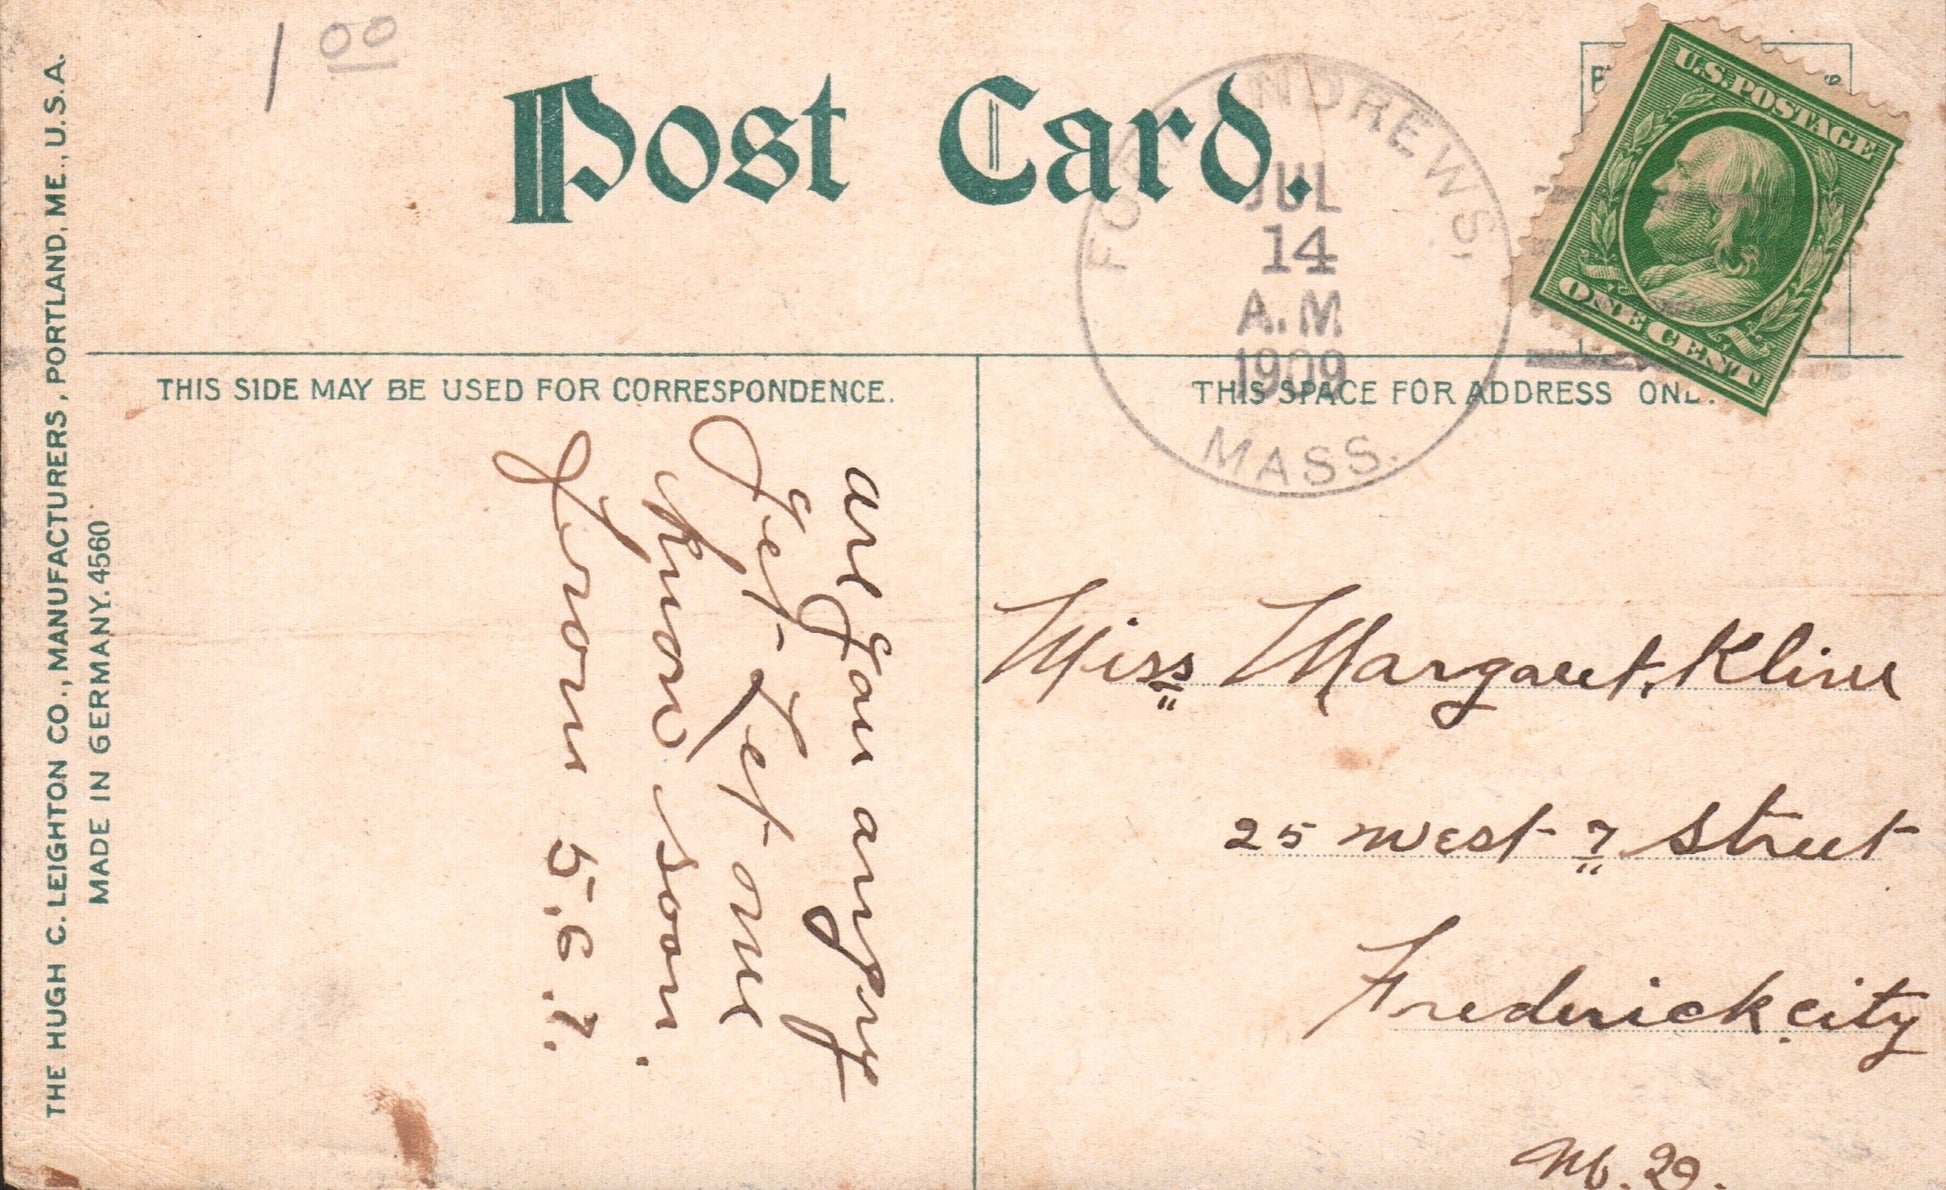 1 00
Post Card.
THE HUGH C. LEIGHTON CO., MANUFACTURERS, PORTLAND, ME., U.S.A.
MADE IN GERMANY. 4560
FORT ANDREWS,
JUL
14
A.M
1909
MASS.
U.S. POSTAGE
ONE CENT
THIS SIDE MAY BE USED FOR CORRESPONDENCE.
THIS SPACE FOR ADDRESS ONL.
are you angry
yet. Let one
know soon.
From 5.6.7.
Miss Margaret. Kline
25 West 7 Street
Frederick. city